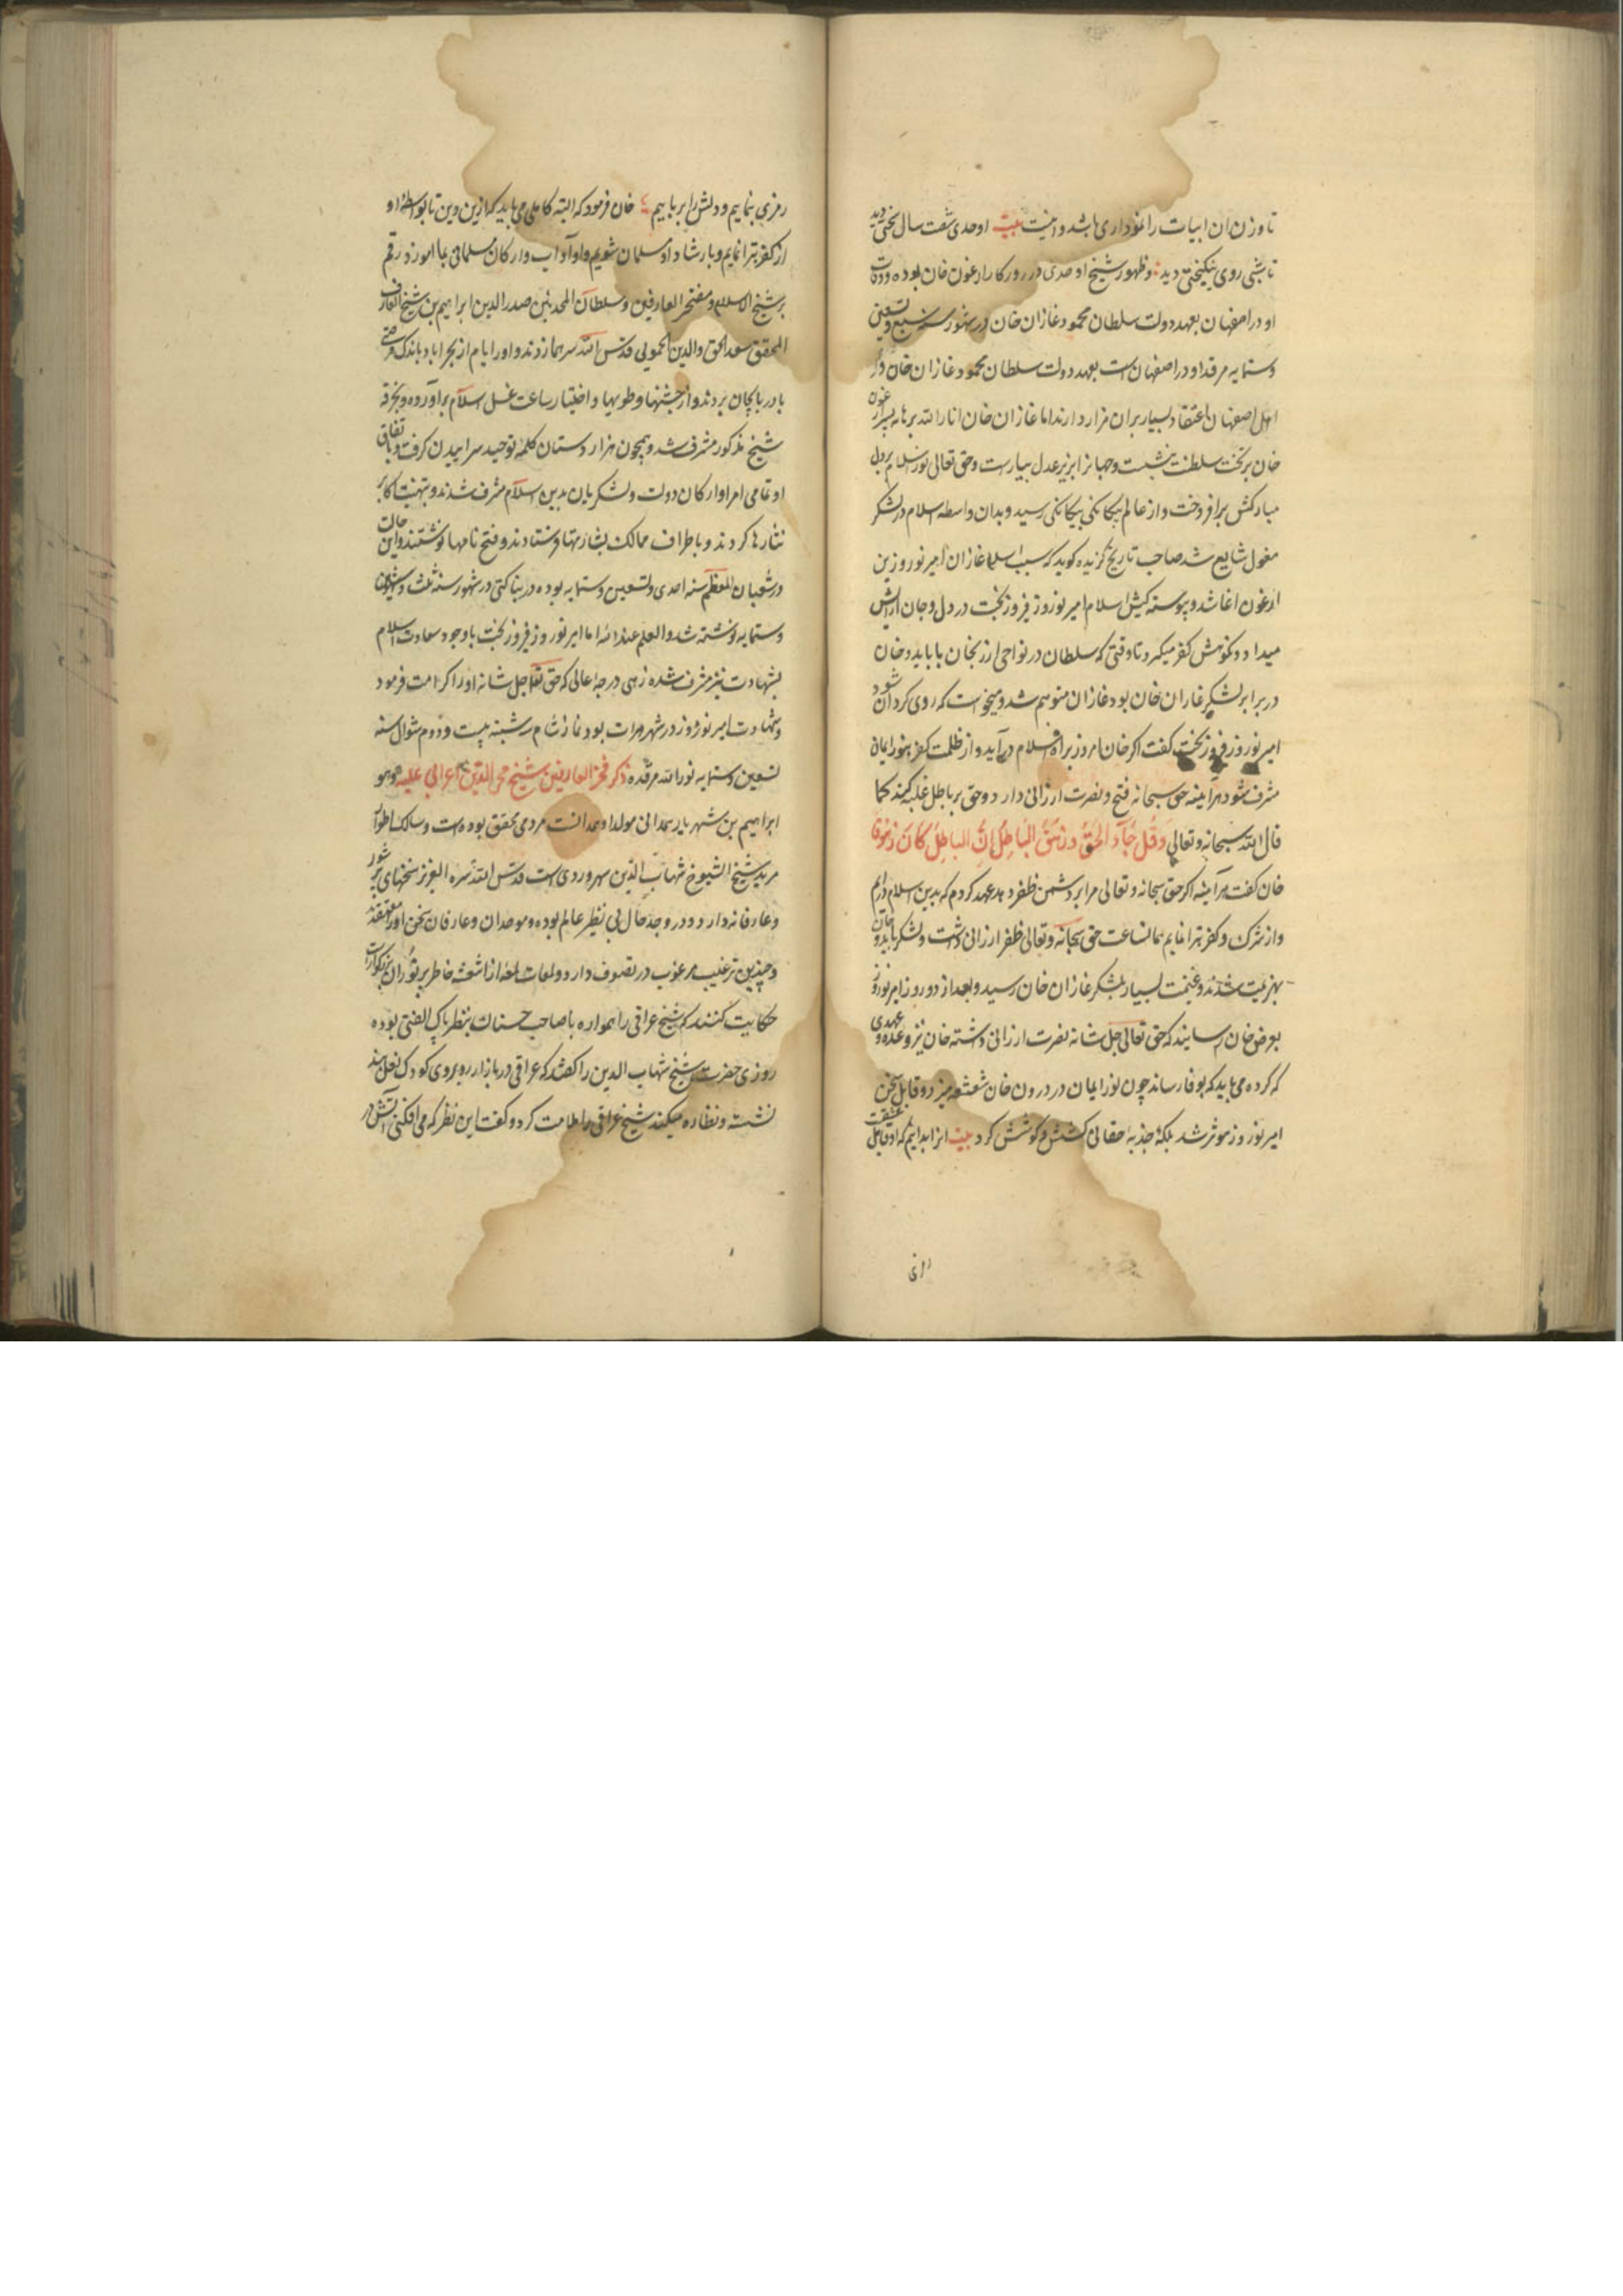 تا وزن ان ابیات را نموداری باشد و اینست بیت اوحدی شصت سال سختی دید
تا شبی روی نیکبختی دید وظهور شیخ اوحدی در روزکار ارغون خان بوده و وفات
او در اصفهان بعهد دولت سلطان محمود غازان خان در شهور سنه سبع و تسعین
وستمایه مرقد او در اصفهان است بعهد دولت سلطان محمود غازان خان و
اهل اصفهان اعتقاد بسیار بران مزار دارند اما غازان خان انار الله برهانه پسر ارغون
خان بر تخت سلطنت بنشست وجهانرا بزیر عدل بیاراست وحق تعالی نور اسلام بر دل
مبارکش برافروخت و از عالم بیکانکی بیکانکی رسید و بدان واسطه اسلام در لشکر
مغول شایع شد صاحب تاریخ کزیده کوید که سبب اسلام غازان امیر نوروز بن
ارغون اغا شد و پیوسته کیش اسلام امیر نوروز فیروز بخت در دل و جان ارایش
میداد و نکوهش کفر میکرد تا وقتی که سلطان در نواحی ارزنجان با بایدو خان
در برابر لشکر غازان خان بود غازان متوهم شد و میخواست که روی کردان شود
امیر نوروز فیروز بخت کفت اکر خان امروز براه اسلام درآید و از ظلمت کفر بنور ایمان
مشرف شود هرآینه حق سبحانه فتح و نصرت ارزانی دارد و حق بر باطل غلبه کند کما
قال الله سبحانه وتعالی وَقُل جَآءَ الحَقُّ وَزَهَقَ البَاطِلُ اِنَّ البَاطِلَ کَانَ زَهُوقا
خان کفت هرآینه اکر حق سبحانه و تعالی مرا بر دشمن ظفر دهد عهد کردم که بدین اسلام درایم
و از شرک و کفر تبرا نمایم همانساعت حق سبحانه وتعالی ظفر ارزانی داشت و لشکر بایدو خان
بهزیمت شدند و غنیمت بسیار بلشکر غازان خان رسید و بعد از دو روز امیر نوروز
بعرض خان رسانید که حق تعالی جل شانه نصرت ارزانی داشته خان نیز وعده و عهدی
که کرده می باید که بوفا رساند چون نور ایمان در درون خان شعشعه میزد و قابل سخن
امیر نوروز موثر شد بلکه جذبهٔ حقانی کشش و کوشش کرد بیت انرا بدایم که او قابل عشقست
رمزی بنماییم و دلش را برباییم خان فرمود که البته کاملی می باید که ازین دین تا بواسطهٔ او
از کفر تبرا نمایم و بارشاد او مسلمان شویم و او آداب و ارکان مسلمانی بما اموزد رقم
بر شیخ الاسلام و مفتخر العارفین و سلطان المحدثین صدر الدین ابراهیم بن شیخ العارف
المحقق سعد الحق والدین الحمویی قدس الله سرهما زدند و او را ایام از بحراباد باندک فرصتی
بادربایجان بردند و از جشنها و طویها و اختیار ساعت غسل اسلام براورده و بخرقه
شیخ مذکور مشرف شد و همچون هزار دستان کلمهٔ توحید سراییدن کرفت و باتفاق
او تمامی امرا و ارکان دولت و لشکریان بدین اسلام مشرف شدند و بتهنیت اکابر
نثارها کردند و باطراف ممالک بشارتها فرستادند و فتح نامها نوشتند و این حالت
در شعبان المعظم سنه احدی و تسعین وستمایه بوده در بناکتی در شهور سنه ثلث و
وستمایه نوشته شد والعلم عند الله اما امیر نوروز فیروز بخت باوجود سعادت اسلام
بشهادت نیز مشرف شده زهی درجهٔ عالی که حق تعالی جل شانه او را کرامت فرمود
وشهادت امیر نوروز در شهر هرات بود نماز شام سه شنبه بیست و دوم شوال سنه
تسعین وستمایه نور الله مرقده ذکر فخر العارفین شیخ محی الدین عراقی علیه وهو
ابراهیم بن شهریار همدانی مولد او همدانست مردی محقق بوده است و سالک اطوار
مرید شیخ الشیوخ شهاب الدین سهروردی است قدس الله سره العزیز سخنهای پر شور
و عارفانه دارد و در وجد و حال بی نظیر عالم بوده و موحدان و عارفان سخن او را معتقدند
وچندین ترغیب مرغوب در تصوف دارد و لمعات لمعه از اشعه خاطر پر نور ان بزرکوار است
حکایت کنند که شیخ عراقی را همواره با صاحب حسنان بنظر پاک الفتی بوده
روزی حضرت شیخ شهاب الدین را کفتند که عراقی در بازار روبروی کودک نعلبند
نشسته و نظاره میکند شیخ عراقی را ملامت کرد و کفت این نظر که می افکنی آتش در